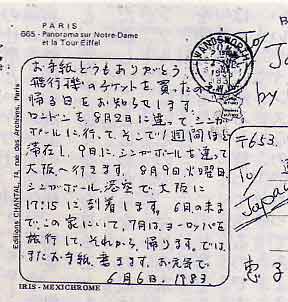 PARIS
665 - Panorama sur Notre-Dame
et la Tour Eiffel
WANDSWORTH
S.W.
To/
by
お手紙どうもありがとう。
飛行機のチケットを買ったので
帰る日をお知らせします。
ロンドンを8月2日に違ってシンガ
ポールに行って、そこで1週間ほど
滞在し、9日に、シンガポールを違って
大阪へ行きます。8月9日、火曜日、
シンガポール航空で、大阪に
17:15に到着します。6月の末ま
で、この家にいて、7月はヨーロッパを
旅行して、それから、帰ります。では、
またお手紙書きます。お元気で
6月6日、1983
〒653
To/
Japan
恵子
Editions CHANTAL, 74, rue des Archives, Paris
IRIS - MEXICHROME